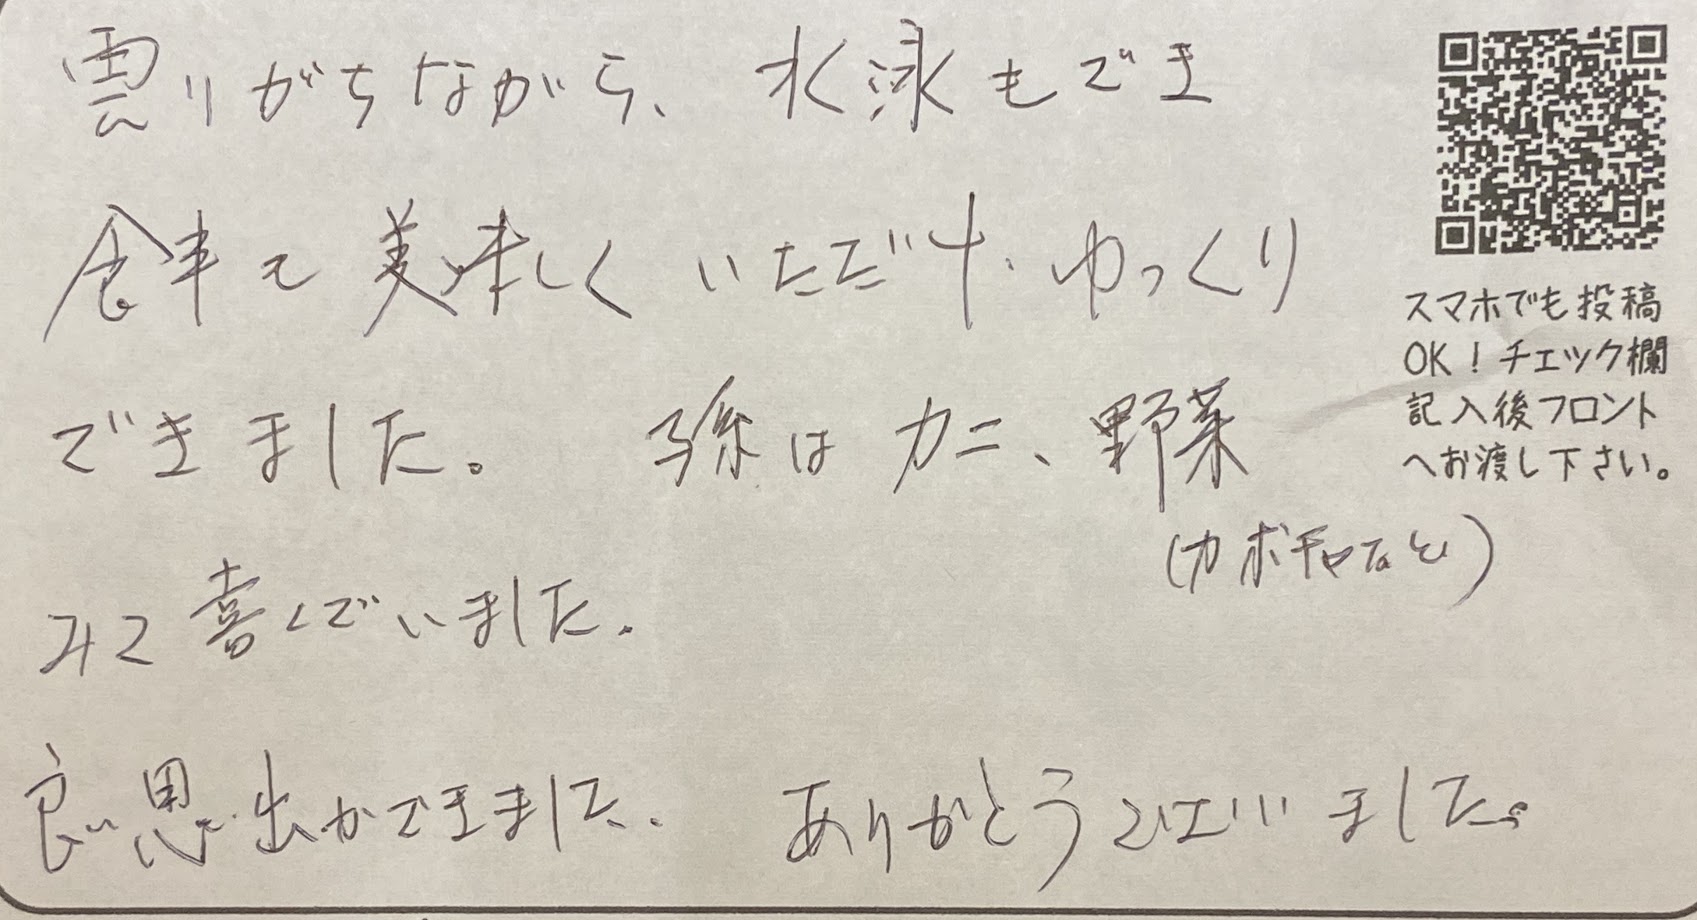 雲りがちながら、水泳もでき
食事も美味しくいただけ、ゆっくり
できました。 孫はカニ、野菜
(カボチャなど)
みて喜んでいました.
良い思い出ができました. ありがとうございました。
スマホでも投稿
OK!チェック欄
記入後フロント
へお渡し下さい。